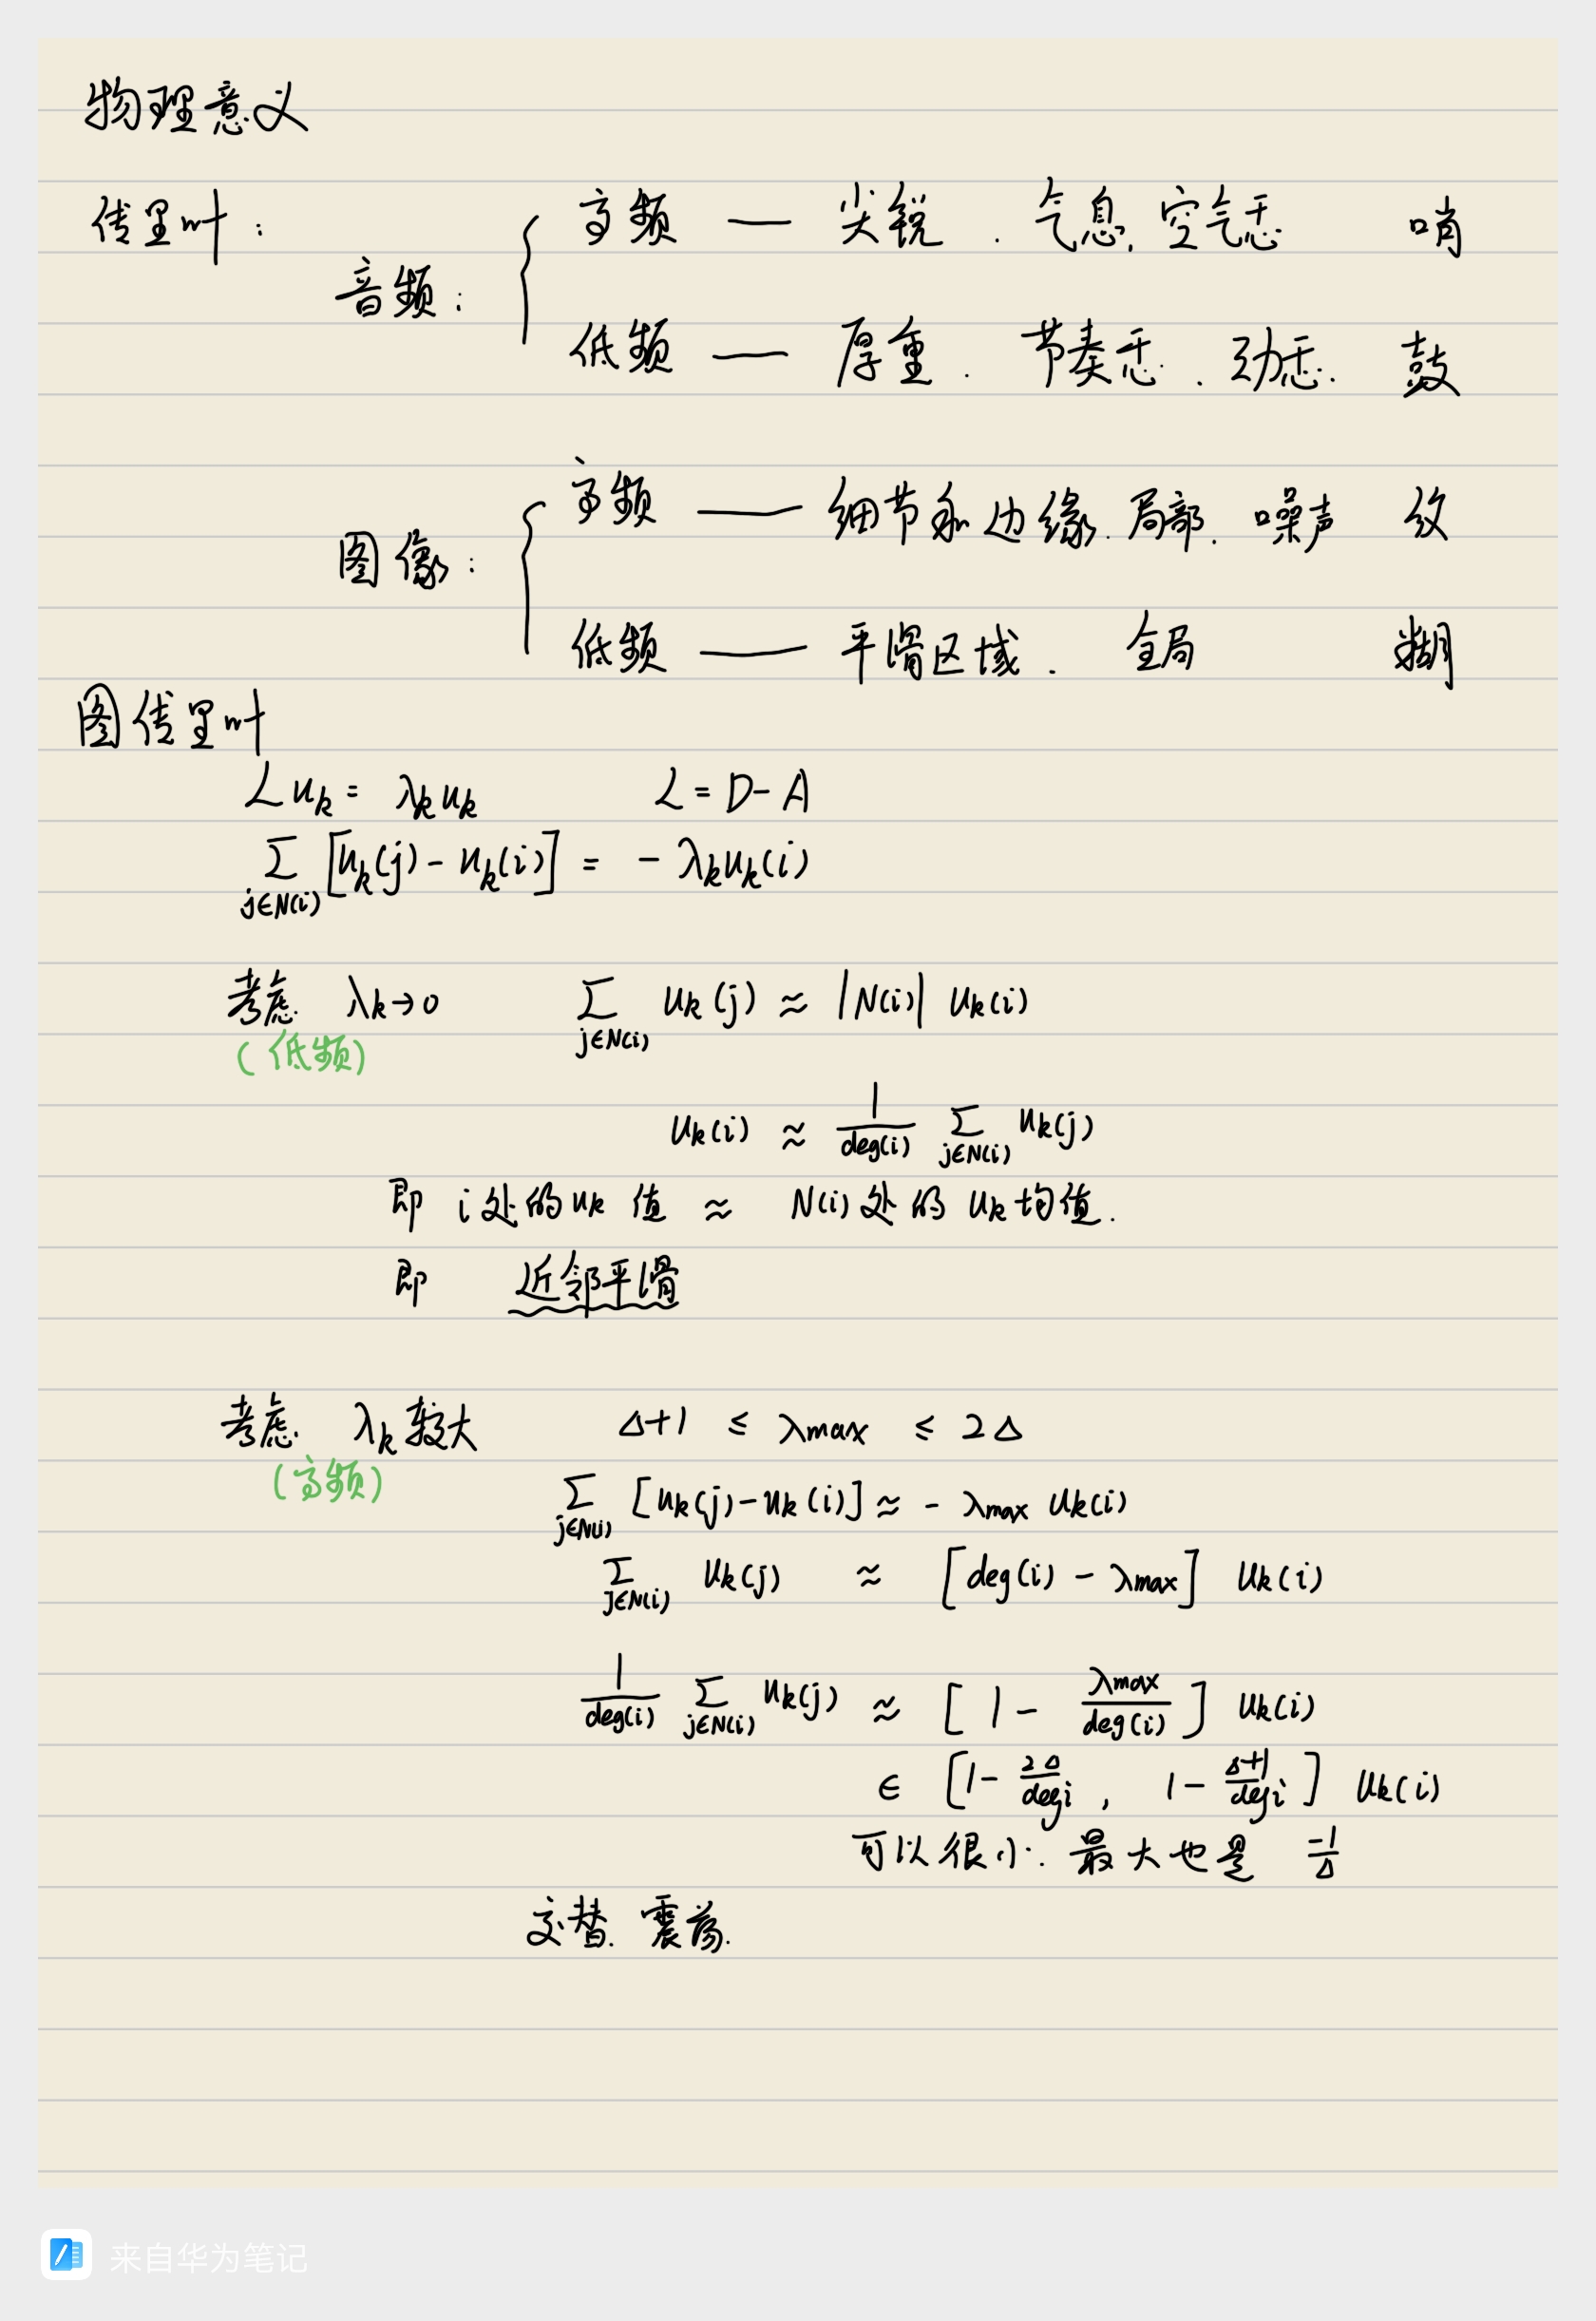 物理意义
传里叶：
音频：
高频 — 尖锐．气息．空气感 哨
低频 — 厚重．节奏感．动感． 鼓
图像：
高频 — 细节和边缘．局部．噪声 纹
低频 — 平滑区域．全局 糊
图传里叶
L u_k = λ_k u_k L = D - A
∑_{j∈N(i)} [u_k(j) - u_k(i)] = - λ_k u_k(i)
考虑 λ_k→0 ∑_{j∈N(i)} u_k(j) ≈ |N(i)| u_k(i)
(低频)
u_k(i) ≈ 1/deg(i) ∑_{j∈N(i)} u_k(j)
即 i处的 u_k 值 ≈ N(i)处的 u_k 均值．
即 近邻平滑
考虑 λ_k 较大 Δ+1 ≤ λmax ≤ 2Δ
(高频)
∑_{j∈N(i)} [u_k(j) - u_k(i)] ≈ - λmax u_k(i)
∑_{j∈N(i)} u_k(j) ≈ [deg(i) - λmax] u_k(i)
1/deg(i) ∑_{j∈N(i)} u_k(j) ≈ [1 - λmax/deg(i)] u_k(i)
∈ [1 - 2Δ/deg i , 1 - Δ+1/deg i] u_k(i)
可以很小．最大也是 -1/Δ
交替．震荡．
来自华为笔记